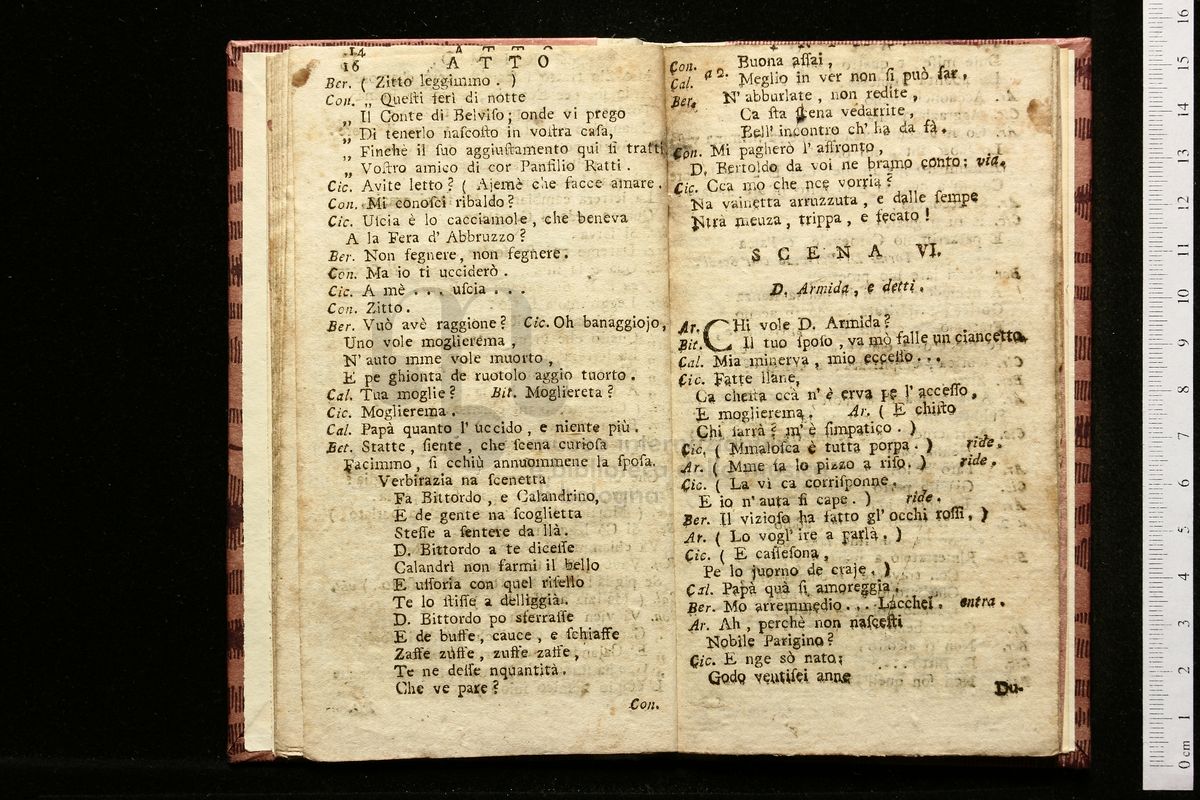 14
16 A T T O
Ber. ( Zitto leggimmo . )
Con. „ Queſti ſeri di notte
„ Il Conte di Belviſo; onde vi prego
„ Di tenerlo naſcoſto in voſtra caſa,
„ Finchè il ſuo aggiuſtamento quì ſi tratti
„ Voſtro amico di cor Panfilio Ratti .
Cic. Avite letto ? ( Ajemè che facce amare .
Con. Mi conoſci ribaldo ?
Cic. Uſcia è lo cacciamole , che beneva
A la Fera d' Abbruzzo ?
Ber. Non fegnere, non fegnere .
Con. Ma io ti ucciderò .
Cic. A mè . . . uſcia . . .
Con. Zitto .
Ber. Vuò avè raggione ? Cic. Oh banaggiojo,
Uno vole moglierema ,
N' auto mme vole muorto ,
E pe ghionta de ruotolo aggio tuorto .
Cal. Tua moglie ? Bit. Mogliereta ?
Cic. Moglierema .
Cal. Papà quanto l' uccido , e niente più .
Ber. Statte , ſiente , che ſcena curioſa
Facimmo , ſi cchiù annuommene la ſpoſa.
Verbirazia na ſcenetta
Fa Bittordo , e Calandrino,
E de gente na ſcoglietta
Steſſe a ſentere da llà .
D. Bittordo a te diceſſe
Calandrì non farmi il bello
E uſſoria con quel riſello
Te lo ſtiſſe a delliggià.
D. Bittordo po sferraſſe
E de buffe , cauce , e ſchiaffe
Zaffe zuffe , zuffe zaffe ,
Te ne deſſe nquantità .
Che ve pare ?
Con.
Con. Buona aſſai ,
Cal. a 2. Meglio in ver non ſi può far .
Ber. N' abburlate , non redite ,
Ca ſta ſcena vedarrite ,
Bell' incontro ch' ha da fà .
Con. Mi pagherò l' affronto ,
D. Bertoldo da voi ne bramo conto; via.
Cic. Cca mo che nce vorria ?
Na vainetta arruzzuta , e dalle ſempe
Ntra meuza , trippa , e fecato !
S C E N A VI.
D. Armida , e detti .
Ar. CHi vole D. Armida ?
Bit. Il tuo ſpoſo , va mò falle un ciancetto.
Cal. Mia minerva , mio eccello . . .
Cic. Fatte llane,
Ca cheſta ccà n' è erva pe l' acceſſo .
E moglierema . Ar. ( E chiſto
Chi ſarrà ? m' è ſimpatico . )
Cic. ( Mmaloſca è tutta porpa . ) ride .
Ar. ( Mme fa lo pizzo a riſo. ) ride .
Cic. ( La vi ca corriſponne .
E io n' auta ſi cape . ) ride .
Ber. Il vizioſo ha fatto gl' occhi roſſi . )
Ar. ( Lo vogl' ire a parlà . )
Cic. ( E caſſeſona ,
Pe lo juorno de craje . )
Cal. Papà quà ſi amoreggia .
Ber. Mo arremmedio . . . Lacchei . entra .
Ar. Ah , perchè non naſceſti
Nobile Parigino ?
Cic. E nge sò nato;
Godo ventiſei anne
Du-